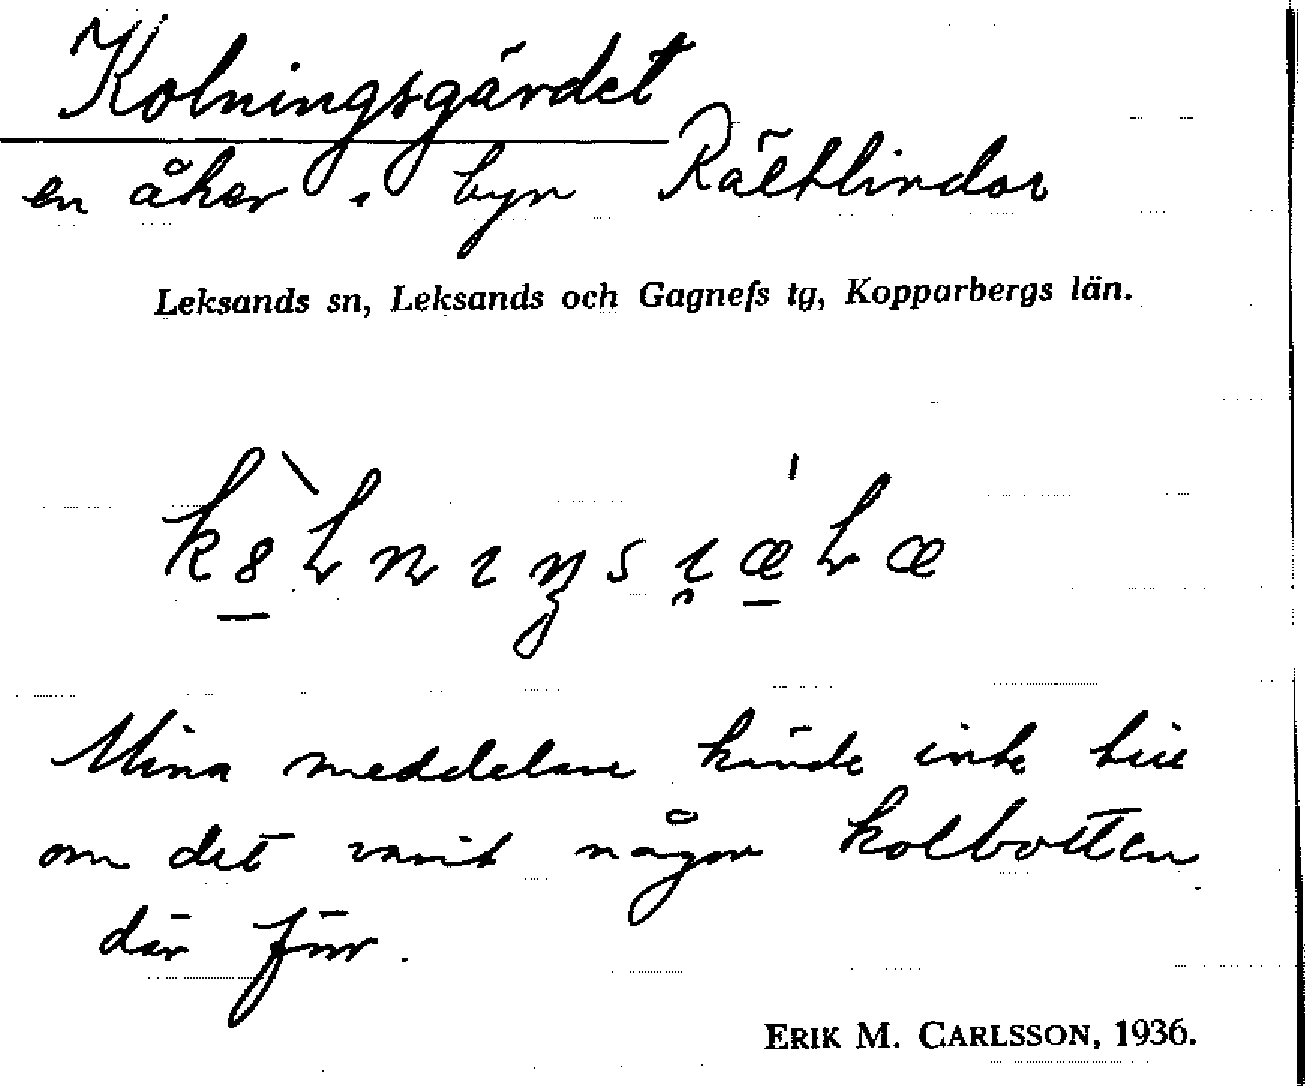 Kolningsgärdet
en åker i byn Rältlindor
Leksands sn, Leksands och Gagnefs tg, Kopparbergs län.
Mina meddelare kände inte till
om det varit någon kolbotten
där förr.
ERIK M. CARLSSON, 1936.